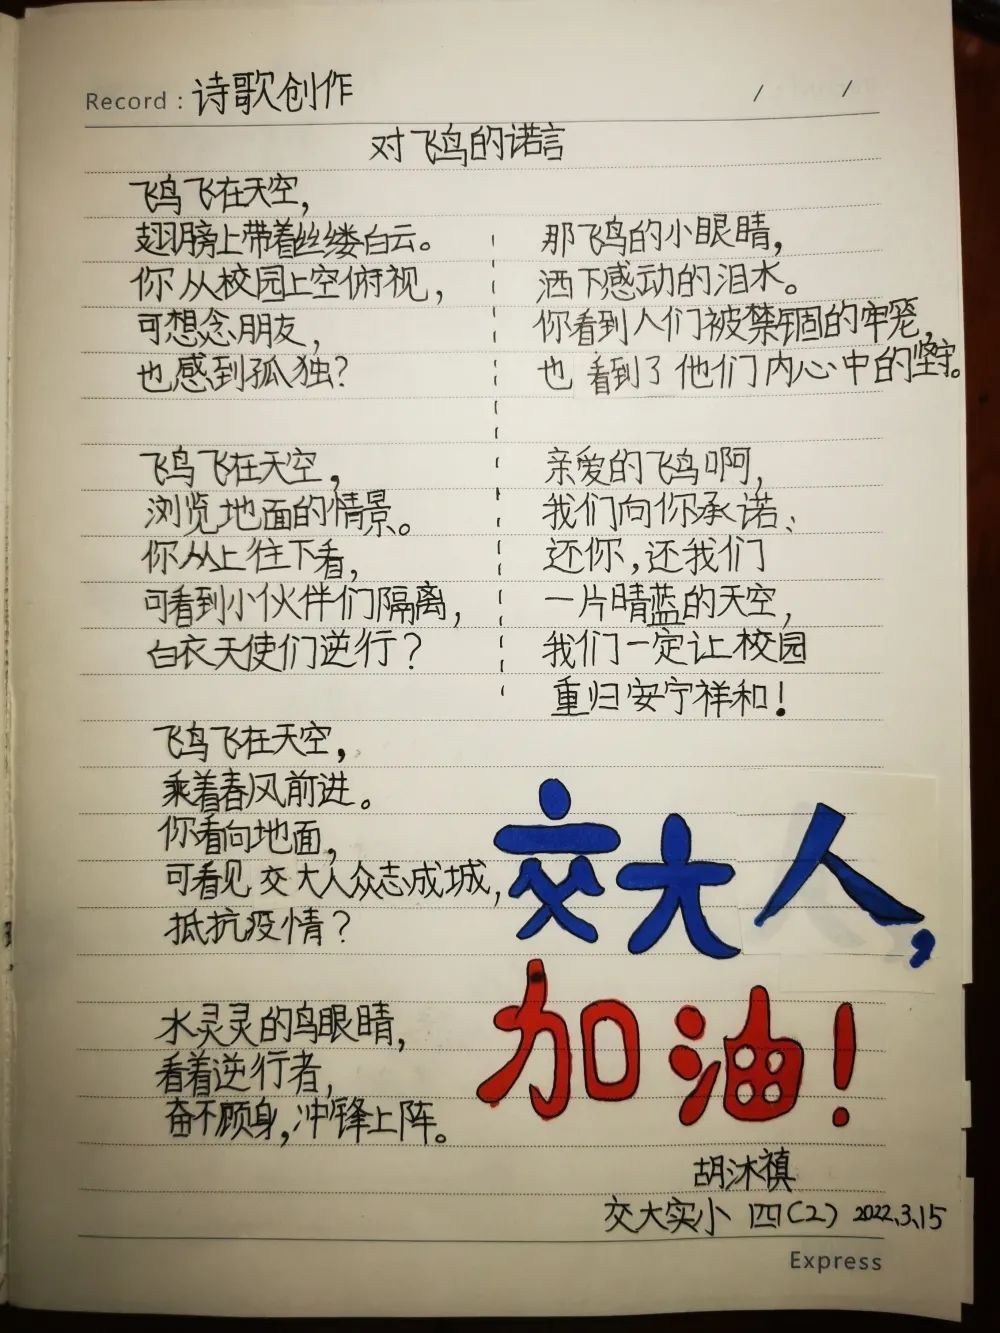 Record : 诗歌创作 / /
对飞鸟的诺言
飞鸟飞在天空，
翅膀上带着丝缕白云。
你从校园上空俯视，
可想念朋友，
也感到孤独？
飞鸟飞在天空，
浏览地面的情景。
你从上往下看，
可看到小伙伴们隔离，
白衣天使们逆行？
飞鸟飞在天空，
乘着春风前进。
你看向地面，
可看见交大人众志成城，
抵抗疫情？
水灵灵的鸟眼睛，
看着逆行者，
奋不顾身，冲锋上阵。
那飞鸟的小眼睛，
洒下感动的泪水。
你看到人们被禁锢的牢笼，
也看到了他们内心中的坚守。
亲爱的飞鸟啊，
我们向你承诺、
还你，还我们
一片晴蓝的天空，
我们一定让校园
重归安宁祥和！
交大人，
加油！
胡沐禛
交大实小 四（2） 2022.3.15
Express